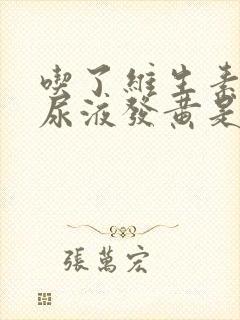 喫了維生素
尿液發黃是
張萬宏